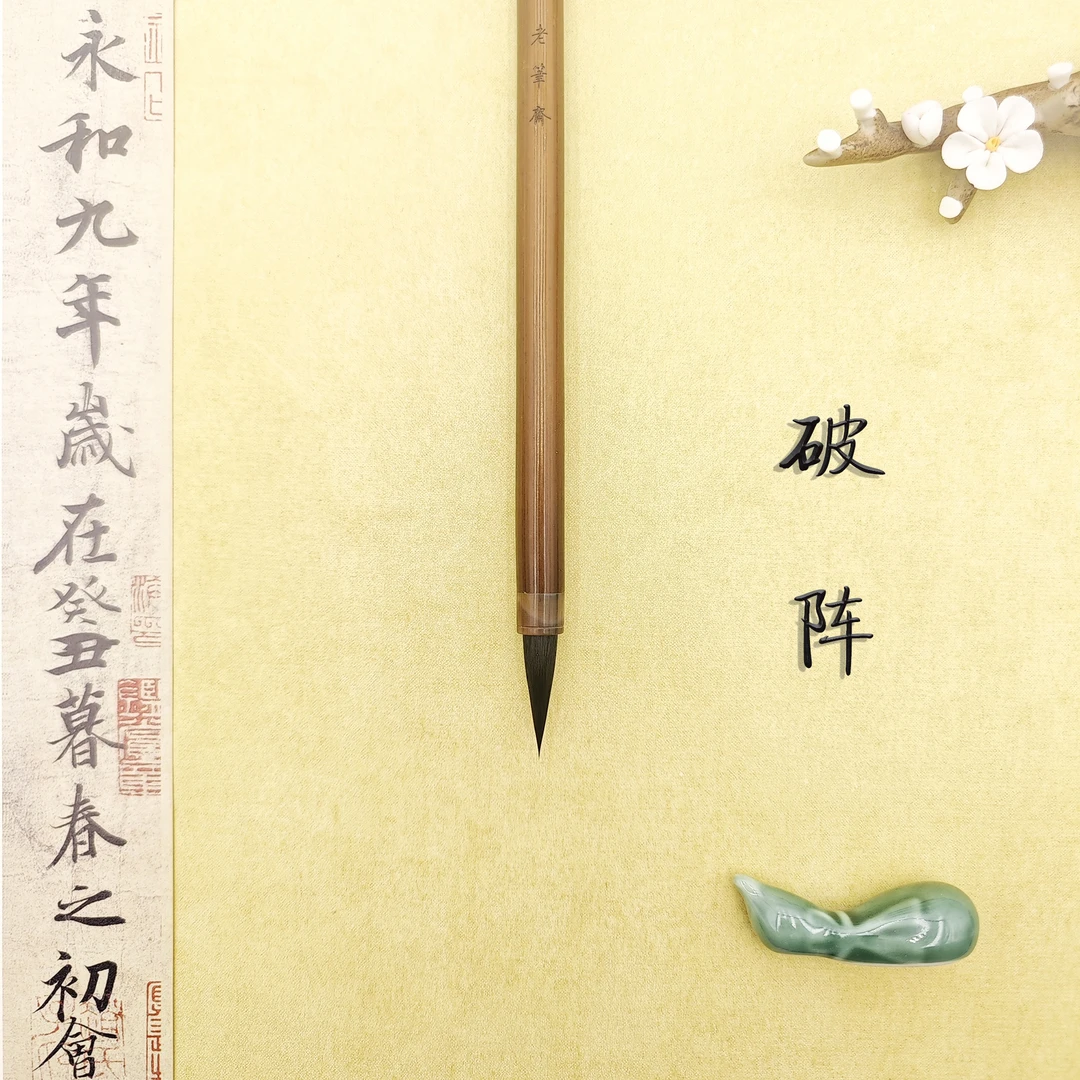 永和九年歲在癸丑暮春之初會
老筆齋
破阵